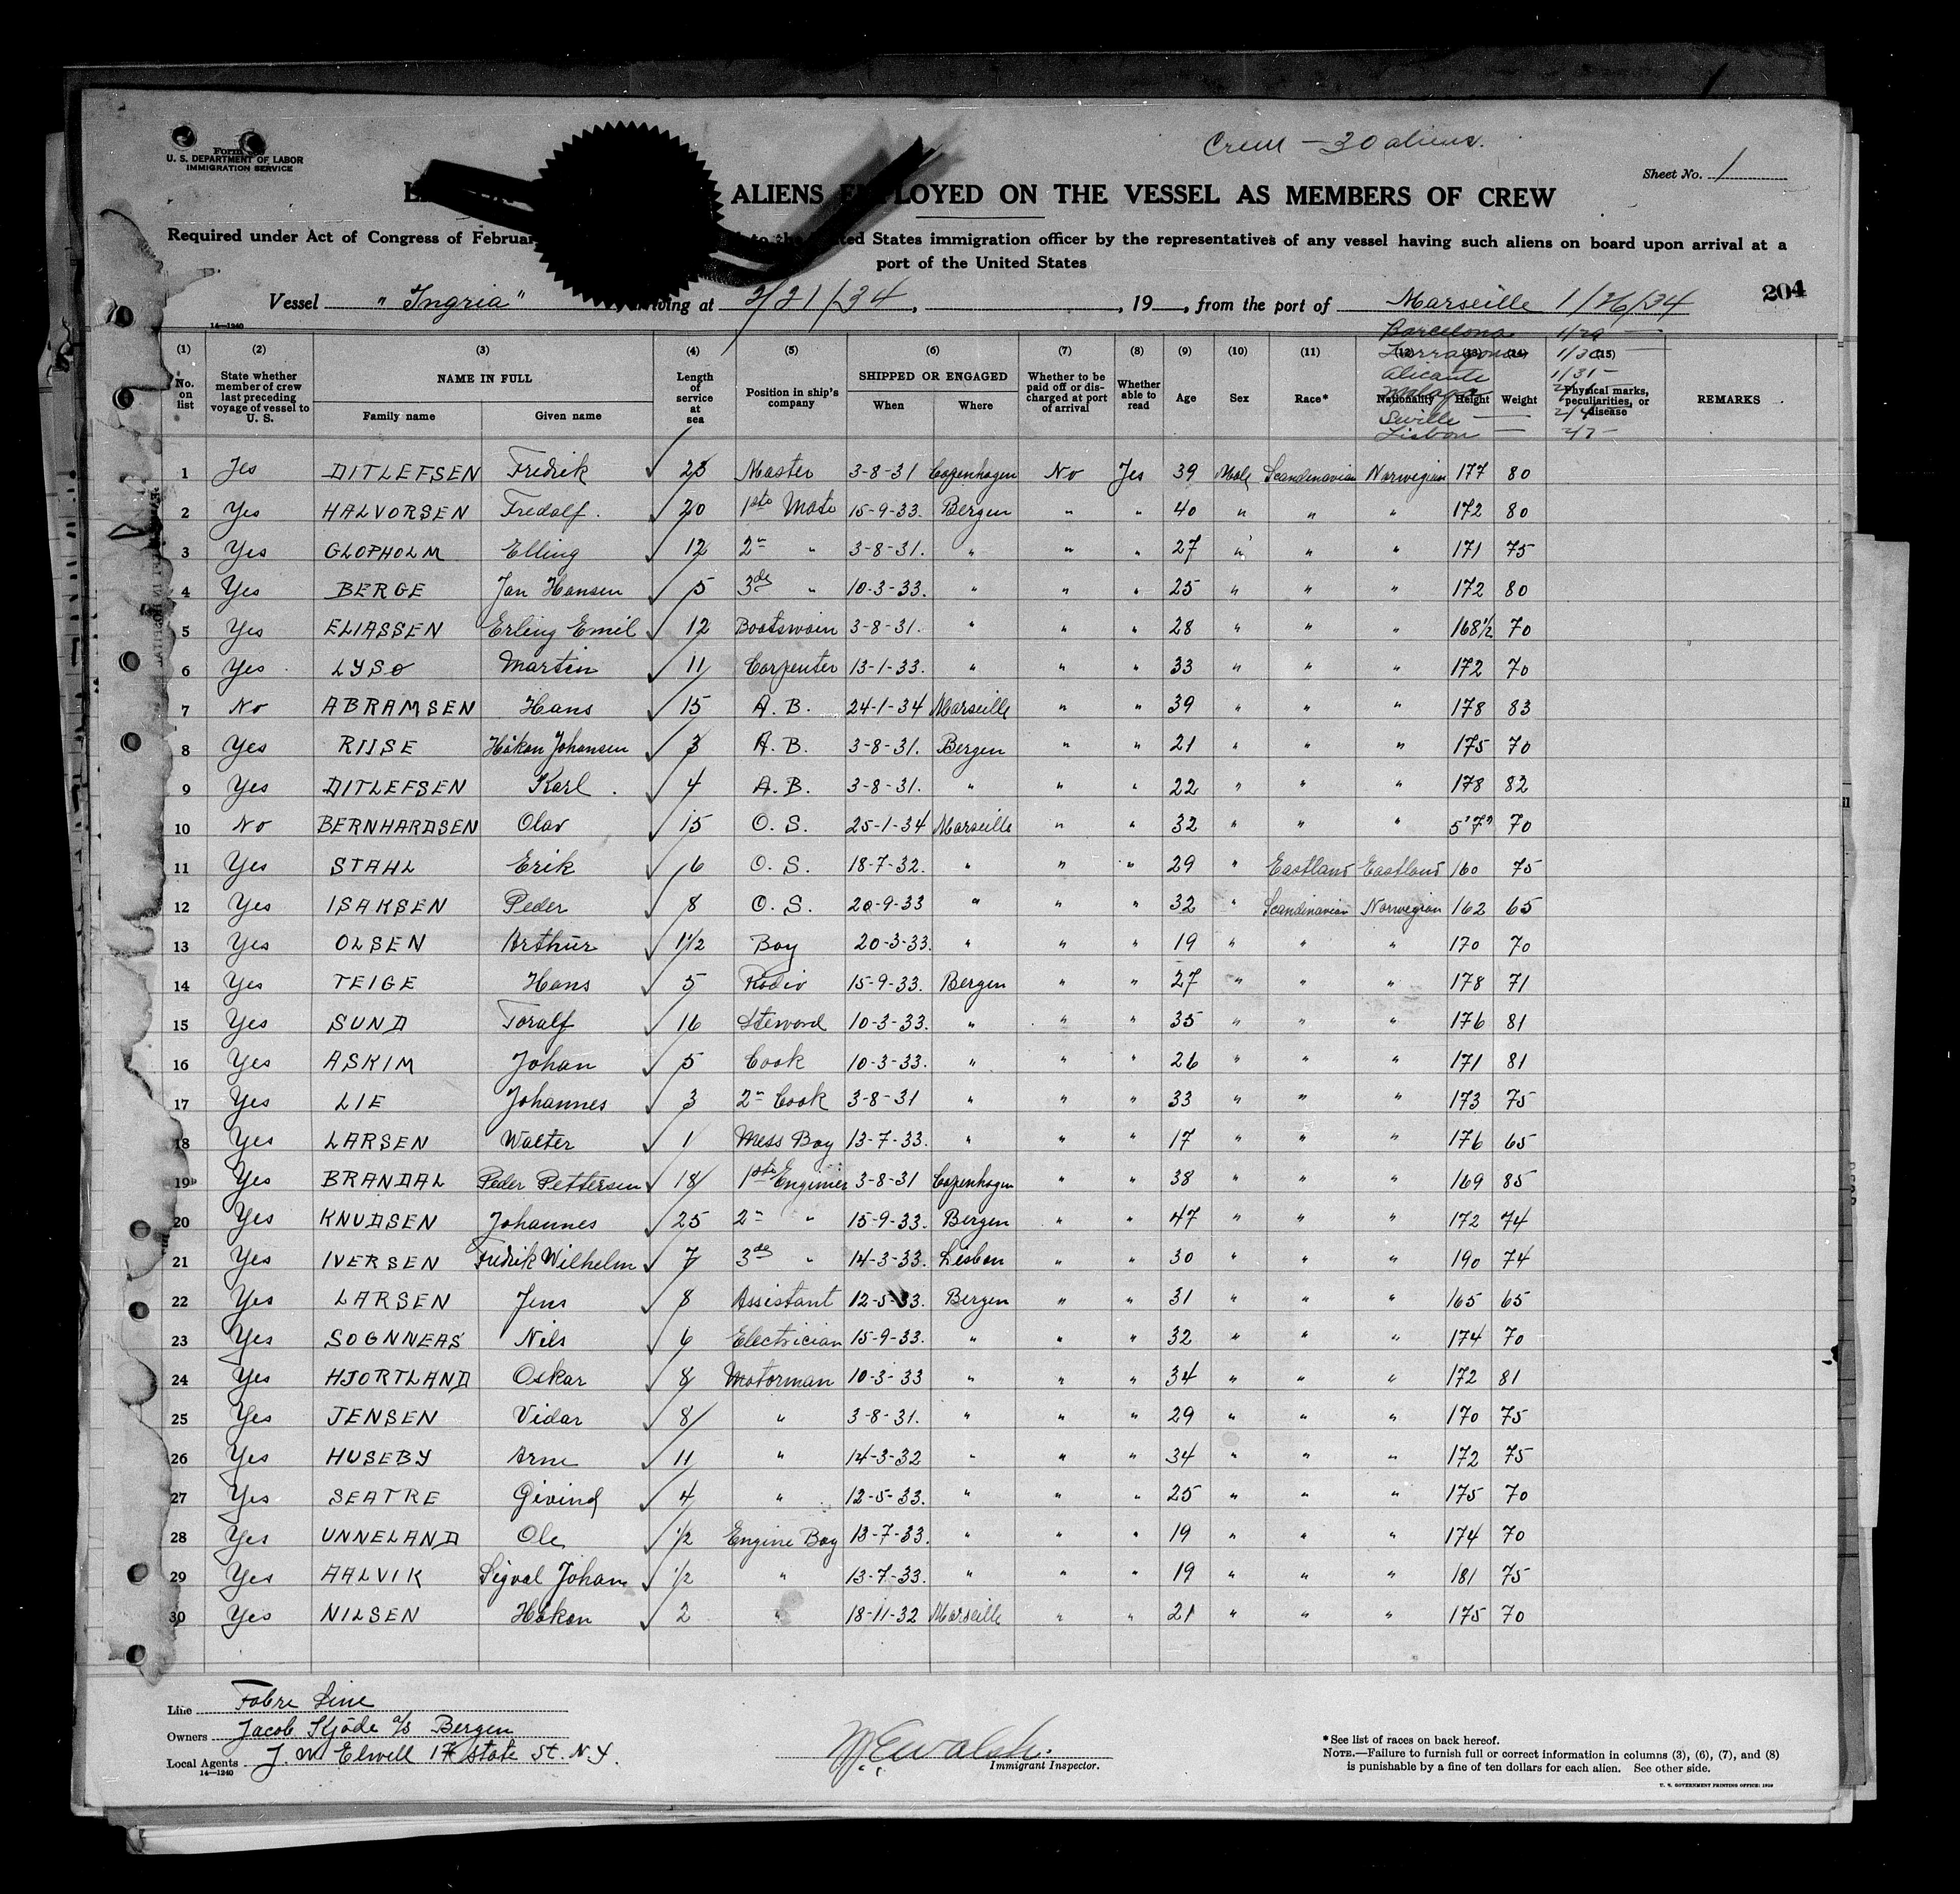 Crew - 30 aliens.
Form
U. S. DEPARTMENT OF LABOR
IMMIGRATION SERVICE
Sheet No. 1
ALIENS EMPLOYED ON THE VESSEL AS MEMBERS OF CREW
Required under Act of Congress of Februar to the United States immigration officer by the representatives of any vessel having such aliens on board upon arrival at a
port of the United States
204
Vessel "Ingria" arriving at 2/21/34, , 19 , from the port of Marseille 1/26/34
Barcelona 1/29 —
Tarragona 1/30 —
Alicante 1/31 —
Malaga
Seville — 2/4 —
Lisbon — 2/7 —
14—1240
(1) (2) (3) (4) (5) (6) (7) (8) (9) (10) (11) (12) (13) (14) (15)
No. on list
State whether member of crew last preceding voyage of vessel to U. S.
NAME IN FULL
Family name Given name
Length of service at sea
Position in ship's company
SHIPPED OR ENGAGED
When Where
Whether to be paid off or discharged at port of arrival
Whether able to read
Age Sex Race* Nationality Height Weight
Physical marks, peculiarities, or disease
REMARKS
1 Yes DITLEFSEN Fredrik ✓ 23 Master 3-8-31 Copenhagen No Yes 39 Male Scandinavian Norwegian 177 80
2 Yes HALVORSEN Fredolf. ✓ 20 1ste Mate 15-9-33. Bergen " " 40 " " " 172 80
3 Yes GLOPHOLM Elling ✓ 12 2n " 3-8-31. " " " 27 " " " 171 75
4 Yes BERGE Jan Hansen ✓ 5 3de " 10-3-33. " " " 25 " " " 172 80
5 Yes ELIASSEN Erling Emil ✓ 12 Boatswain 3-8-31. " " " 28 " " " 168½ 70
6 Yes LYSO Martin ✓ 11 Carpenter 13-1-33. " " " 33 " " " 172 70
7 No ABRAMSEN Hans ✓ 15 A. B. 24-1-34 Marseille " " 39 " " " 178 83
8 Yes RIISE Håkon Johansen ✓ 3 A. B. 3-8-31. Bergen " " 21 " " " 175 70
9 Yes DITLEFSEN Karl. ✓ 4 A. B. 3-8-31. " " " 22 " " " 178 82
10 No BERNHARDSEN Olav ✓ 15 O. S. 25-1-34 Marseille " " 32 " " " 5'7" 70
11 Yes STAHL Erik ✓ 6 O. S. 18-7-32. " " " 29 " Eastland Eastland 160 75
12 Yes ISAKSEN Peder ✓ 8 O. S. 20-9-33 " " " 32 " Scandinavian Norwegian 162 65
13 Yes OLSEN Arthur ✓ 1½ Boy 20-3-33. " " " 19 " " " 170 70
14 Yes TEIGE Hans ✓ 5 Radio 15-9-33. Bergen " " 27 " " " 178 71
15 Yes SUND Toralf ✓ 16 Steward 10-3-33. " " " 35 " " " 176 81
16 Yes ASKIM Johan ✓ 5 Cook 10-3-33. " " " 26 " " " 171 81
17 Yes LIE Johannes ✓ 3 2n Cook 3-8-31 " " " 33 " " " 173 75
18 Yes LARSEN Walter ✓ 1 Mess Boy 13-7-33. " " " 17 " " " 176 65
19 Yes BRANDAL Peder Pettersen ✓ 18 1ste Enginier 3-8-31 Copenhagen " " 38 " " " 169 85
20 Yes KNUDSEN Johannes ✓ 25 2n " 15-9-33. Bergen " " 47 " " " 172 74
21 Yes IVERSEN Fredrik Wilhelm ✓ 7 3de " 14-3-33. Lisbon " " 30 " " " 190 74
22 Yes LARSEN Jens ✓ 8 Assistant 12-5-33. Bergen " " 31 " " " 165 65
23 Yes SOGNNEAS Nils ✓ 6 Electrician 15-9-33. " " " 32 " " " 174 70
24 Yes HJORTLAND Oskar ✓ 8 Motorman 10-3-33 " " " 34 " " " 172 81
25 Yes JENSEN Vidar ✓ 8 " 3-8-31. " " " 29 " " " 170 75
26 Yes HUSEBY Arne ✓ 11 " 14-3-32 " " " 34 " " " 172 75
27 Yes SEATRE Öivind ✓ 4 " 12-5-33. " " " 25 " " " 175 70
28 Yes UNNELAND Ole ✓ ½ Engine Boy 13-7-33. " " " 19 " " " 174 70
29 Yes AALVIK Sigval Johan ✓ ½ " 13-7-33. " " " 19 " " " 181 75
30 Yes NILSEN Håkon ✓ 2 " 18-11-32 Marseille " " 21 " " " 175 70
Line Fabre Line
Owners Jacob Kjöde a/s Bergen
Local Agents J. W Elwell 17 State St. N. Y.
14—1240
Immigrant Inspector.
*See list of races on back hereof.
NOTE.—Failure to furnish full or correct information in columns (3), (6), (7), and (8)
is punishable by a fine of ten dollars for each alien. See other side.
U. S. GOVERNMENT PRINTING OFFICE: 1929